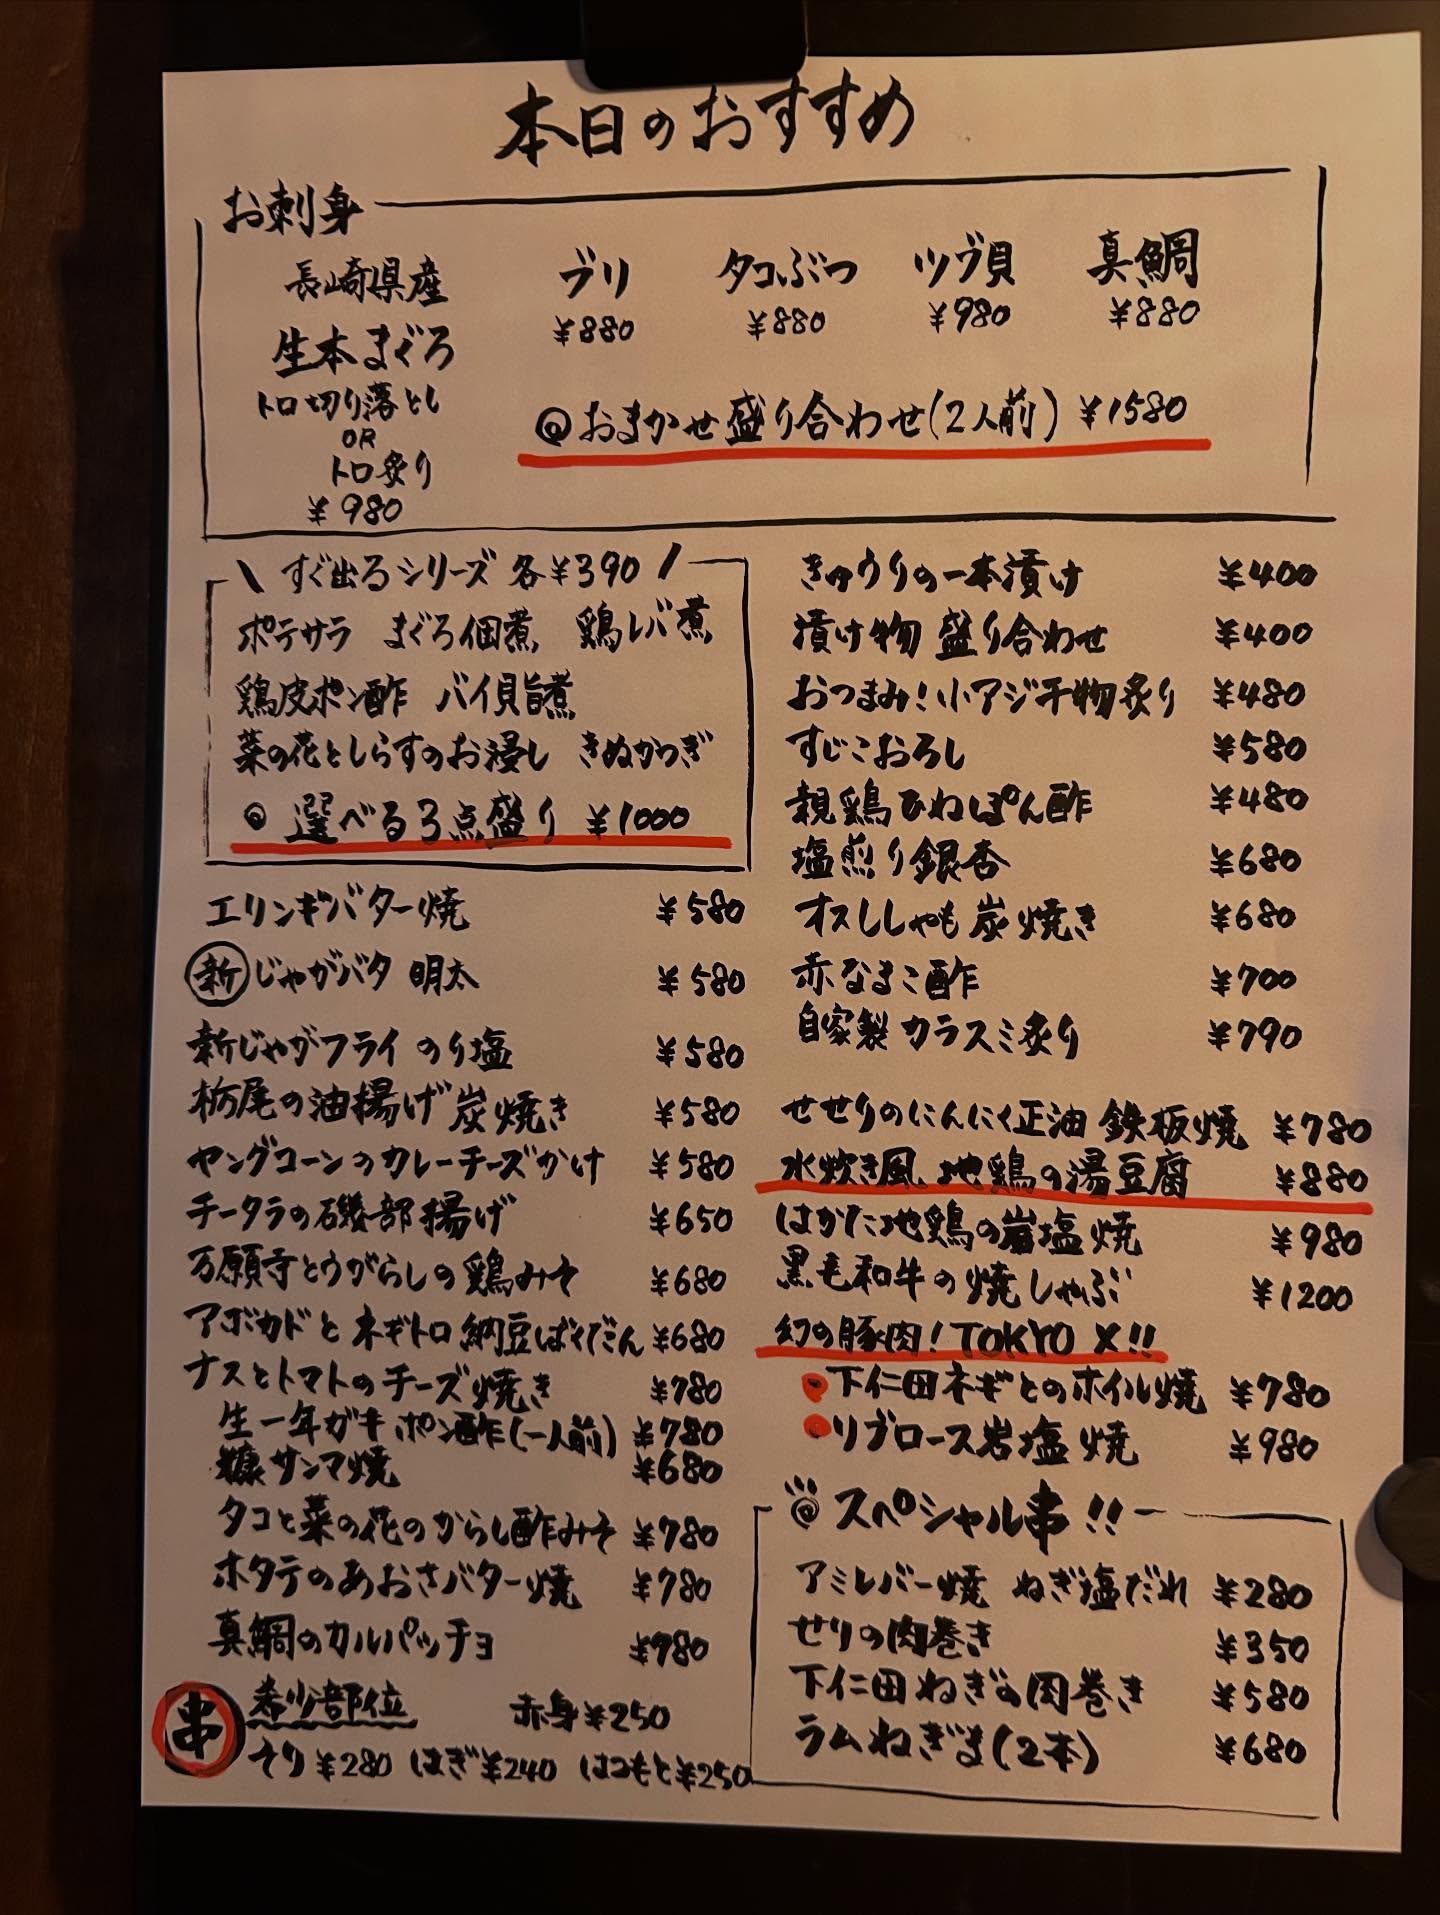 本日のおすすめ
お刺身
長崎県産
生本まぐろ
トロ切り落とし
OR
トロ炙り
¥980
ブリ
¥880
タコぶつ
¥880
ツブ貝
¥980
真鯛
¥880
@おまかせ盛り合わせ(2人前) ¥1580
\ すぐ出るシリーズ 各¥390 /
ポテサラ まぐろ佃煮 鶏レバ煮
鶏皮ポン酢 バイ貝旨煮
菜の花としらすのお浸し きぬかつぎ
◎ 選べる3点盛り ¥1000
エリンギバター焼 ¥580
新じゃがバタ 明太 ¥580
新じゃがフライ のり塩 ¥580
栃尾の油揚げ 炭焼き ¥580
ヤングコーンのカレーチーズかけ ¥580
チータラの磯部揚げ ¥650
万願寺とうがらしの鶏みそ ¥680
アボカドとネギトロ納豆ばくだん ¥680
ナスとトマトのチーズ焼き ¥780
生一年ガキ ポン酢(一人前) ¥780
糠サンマ焼 ¥680
タコと菜の花のからし酢みそ ¥780
ホタテのあおさバター焼 ¥780
真鯛のカルパッチョ ¥980
串 希少部位 赤身¥250
そり¥280 はぎ¥240 はつもと¥250
きゅうりの一本漬け ¥400
漬け物 盛り合わせ ¥400
おつまみ!小アジ干物炙り ¥480
すじこおろし ¥580
親鶏ひねぽん酢 ¥480
塩煎り銀杏 ¥680
オスししゃも炭焼き ¥680
赤なまこ酢 ¥700
自家製カラスミ炙り ¥790
せせりのにんにく正油 鉄板焼 ¥780
水炊き風 地鶏の湯豆腐 ¥880
はかた地鶏の岩塩焼 ¥980
黒毛和牛の焼しゃぶ ¥1200
幻の豚肉!TOKYO X!!
下仁田ネギとのホイル焼 ¥780
リブロース岩塩焼 ¥980
スペシャル串!!
アミレバー焼 ねぎ塩だれ ¥280
せりの肉巻き ¥350
下仁田ねぎの肉巻き ¥580
ラムねぎま(2本) ¥680